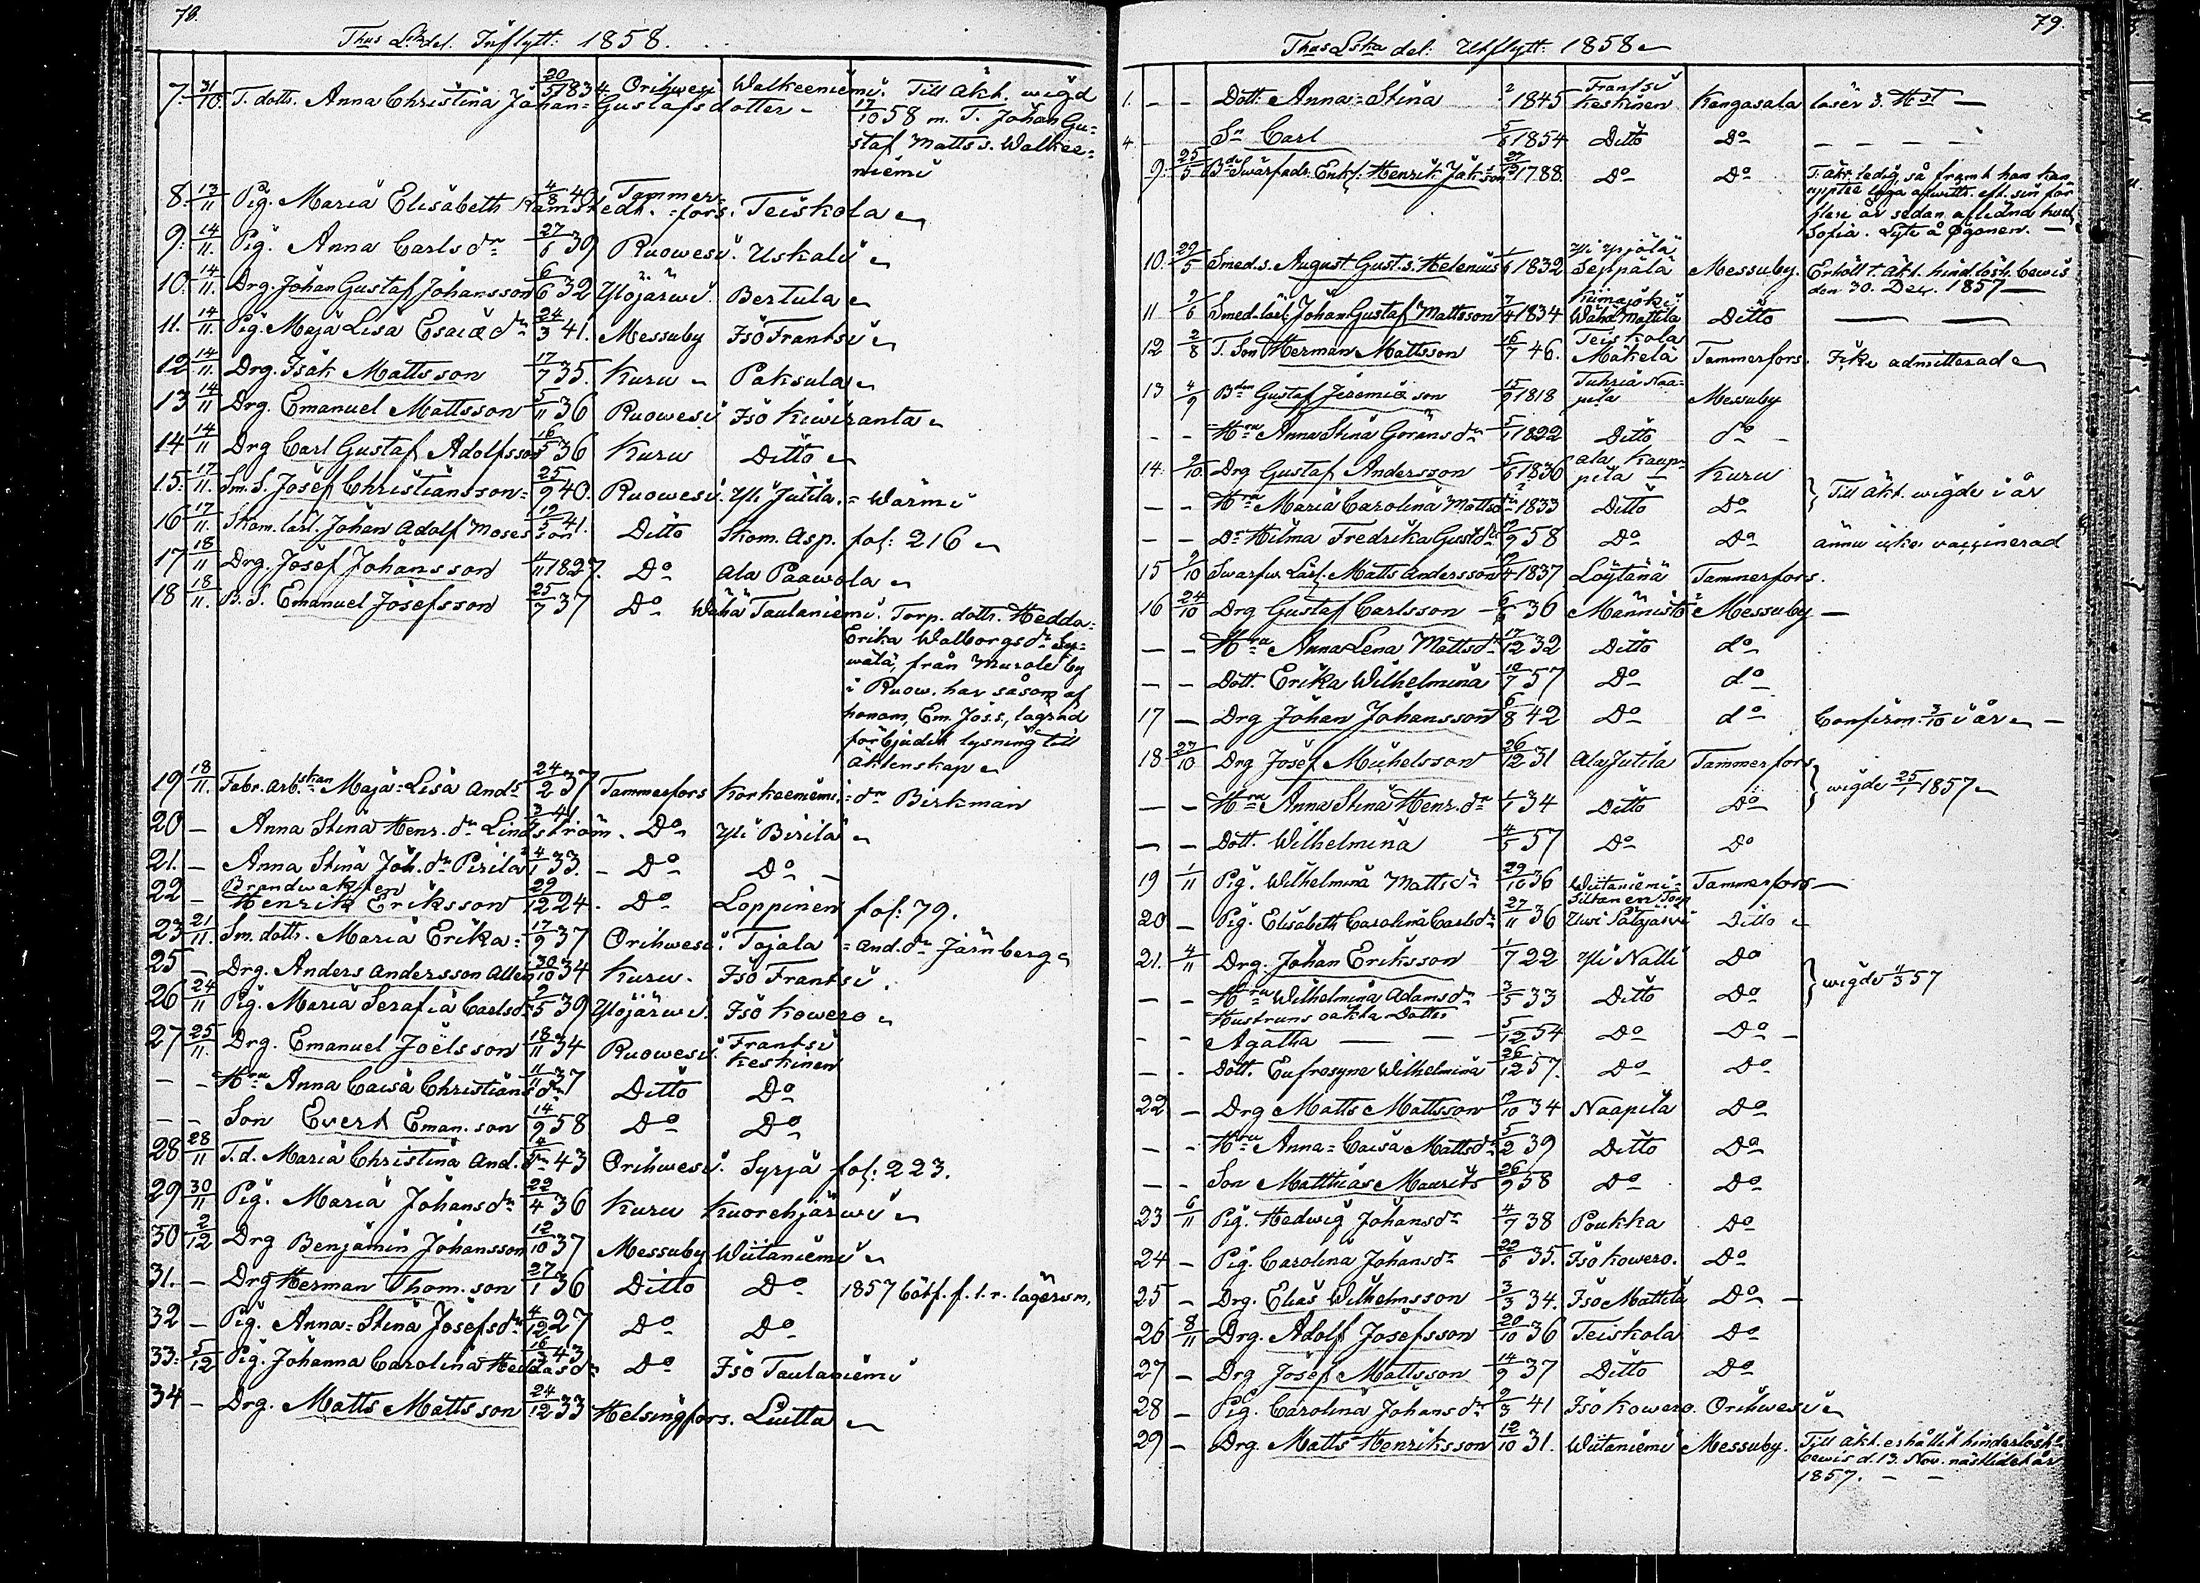 78.
Thus Lska del. Inflytt: 1858.
7. 31/10. T. dottr. Anna Christina Johan= 20/5 1834. Orihwesi Walkeeniemi. Till äkt. wigd
Gustafsdotter 17/10 58 m. T. Johan Gu=
staf Matts s. Walkee=
niemi
8. 13/11 Pig. Maria Elisabeth Ramstedt. 4/8 40 Tammer=fors. Teiskola
9. 14/11. Pig. Anna Carlsdr 27/6 39 Ruowesi. Uskali
10. 14/11. Drg. Johan Gustaf Johansson 6/6 32 Ylöjärwi. Bertula
11. 14/11. Pig. Maja Lisa Esaiædr 24/3 41. Messuby Iso Frantsi
12 14/11. Drg. Isak Mattsson 17/7 35. Kuru Paksula
13 14/11 Drg. Emanuel Mattsson 5/11 36 Ruowesi Iso Kiwiranta
14 14/11 Drg Carl Gustaf Adolfsson 16/5 36 Kuru Ditto
15. 17/11. Sm. S. Josef Christiansson= 25/9 40. Ruowesi. Yli Jutila. = Wärmi
16 17/11. Skom. lärl. Johan Adolf Mosesson 19/5 41. Ditto Skom. Asp. fol: 216
17 18/11 Drg. Josef Johansson 4/11 1827. Do Ala Paawola
18 18/11. B. S. Emanuel Josefsson 25/7 37 Do Wähä Taulaniemi. Torp. dottr. Hedda=
Erika Walborgsdr Sy=
wälä, från Murole by
i Ruow. har såsom af
honom, Em. Jos.s., lägrad
förbjudit lysning till
äktenskap
19 18/11. Fabr. arb.skan Maja=Lisa And= 24/2 37 Tammerfors Korkeeniemi, =dr Birkman
20 – Anna Stina Henr. dr Lindström. 3/4 41 Do Yli Birila
21. – Anna Stina Joh. dr Pirila 4/1 33. – Do Do –
22 – Brandwakten
Henrik Eriksson 29/12 24. Do Loppinen fol: 79.
23 21/11. Sm. dottr. Maria Erika= 17/9 37 Orihwesi. Tojala = And. dr Järnberg
25 – Drg. Anders Andersson Allen 30/10 34 Kuru. Iso Frantsi.
26 24/11 Pig. Maria Serafia Carlsdr 2/5 39 Ylöjärwi. Iso Kowero
27 25/11. Drg. Emanuel Joëlsson 18/11 34 Ruowesi. Frantsi Keskinen
– – Hru Anna Caisa Christiansdr 11/11 37 Ditto Do
– – Son Evert Eman. son 14/9 58 Do Do
28 28/11 T. d. Maria Christina And. dr 43 Orihwesi. Syrjä fol: 223.
29 30/11 Pig. Maria Johansdr 22/4 36 Kuru Kuorehjärwi
30 2/12 Drg Benjamin Johansson 12/10 37 Messuby Wiitaniemi
31. – Drg Herman Thom. son 27/1 36 Ditto Do 1857 bötf. f. l. r. lägersm.
32 – Pig. Anna=Stina Josefsdr 4/12 27 Do Do
33. 5/12 Pig. Johanna Carolina Heddasdr 16/3 43 Do Iso Taulaniemi
34 – Drg. Matts Mattsson 24/12 33 Helsingfors. Liutta
79.
Thus Lska del: Utflytt: 1858
1. – – Dott. Anna=Stina 2/ 1845 Frantsi Keskinen Kangasala läser 3. Hst –
4. – Sn Carl 5/6 1854 Ditto Do – – – –
9. 25/5 Bde Swarfadr. Enkl. Henrik Jak=son 27/ 1788. Do Do T. äkt. ledig, så framt han kan
nyttja laga afwittr. eft. sin för
flere år sedan aflidna hust.
Sofia. Lyte å ögonen. –
10. 29/5 Smed. s. August Gust. s. Helenius 1/6 1832 Yli Ypjölä Seppälä Messuby. Erhöll t. äkt. hind.lösh. bewis
den 30. Dec. 1857 –
11 2/6 Smed-lärl. Johan Gustaf Mattsson 7/4 1834 Kiimajoki Wähä Mattila Ditto – –
12 2/8 T. Son Herman Mattsson 16/7 46. Teiskola Mäkelä Tammerfors. Icke admitterad
13 4/9 Bden Gustaf Jeremiæson 15/9 1818 Tuhria Naapila Messuby
– – Hru Anna Stina Göransdr 5/1 1822 Ditto do –
14. 2/10 Drg Gustaf Andersson 5/6 1830 Ala Kauppila – Kuru
– – Hru Maria Carolina Mattsdr 1833 Ditto Do } Till äkt. wigde i år
– – Dr Hilma Fredrika Gustdr 19/9 58 Do Do ännu icke vaccinerad
15 9/10 Swarfw. Lärl. Matts Andersson 19/4 1837 Löytänä Tammerfors.
16 24/10 Drg Gustaf Carlsson – 6/6 36 Männistö Messuby –
– – Hru Anna Lena Mattsdr 17/12 32 Ditto do
– – Dott. Erika Wilhelmina 10/7 57 Do do
17 – Drg Johan Johansson 6/8 42 Do do Confirm. 3/10 i år –
18 27/10 Drg Josef Michelsson 26/12 31 Ala Jutila Tammerfors
– – Hru Anna Stina Henr. dr 1/1 34 Ditto Do } wigde 25/1 1857
– – Dott. Wilhelmina 4/5 57 Do Do
19 1/11 Pig. Wilhelmina Mattsdr 29/10 36 Wiitaniemi= Siltanen Torp Tammerfors –
20 – Pig. Elisabeth Carolina Carlsdr 27/11 36 Ditto
21. 4/11 Drg. Johan Eriksson 1/7 22 Yli Nalli Do
– – Hru Wilhelmina Adamsdr 3/5 33 Ditto Do } wigde 4/3 57
Hustruns oäkta Dotter
– – Agatha – – 5/12 54 Do Do –
– – Dott. Eufrosyne Wilhelmina 26/12 57. Do Do
22 – Drg Matts Mattsson 19/10 34 Naapila Do
– – Hru Anna=Caisa Mattsdr 5/2 39 Ditto Do
– – Son Matthias Maurits 26/9 58 Do Do
23 6/11 Pig. Hedwig Johansdr 4/7 38 Poukka Do
24 – Pig. Carolina Johansdr 22/6 35. Iso Kowero. Do
25 – Drg. Elias Wilhelmsson 3/3 34. Iso Mattila Do –
26 8/11 Drg. Adolf Josefsson 20/10 36 Teiskola Do
27 – Drg Josef Mattsson 14/9 37 Ditto Do
28 – Pig. Carolina Johansdr 2/3 41 Iso Kowero. Orihwesi
29 – Drg. Matts Henriksson 12/10 31. Wiitaniemi Messuby. Till äkt. erhållit hinderlösh=
bewis d. 13. Nov. nästlidet år
1857. – –